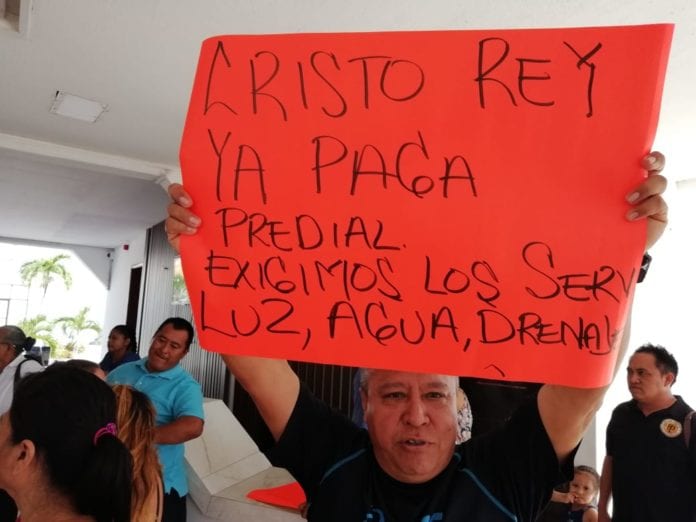 CRISTO REY
YA PAGA
PREDIAL.
EXIGIMOS LOS SERV
LUZ, AGUA, DRENAJ